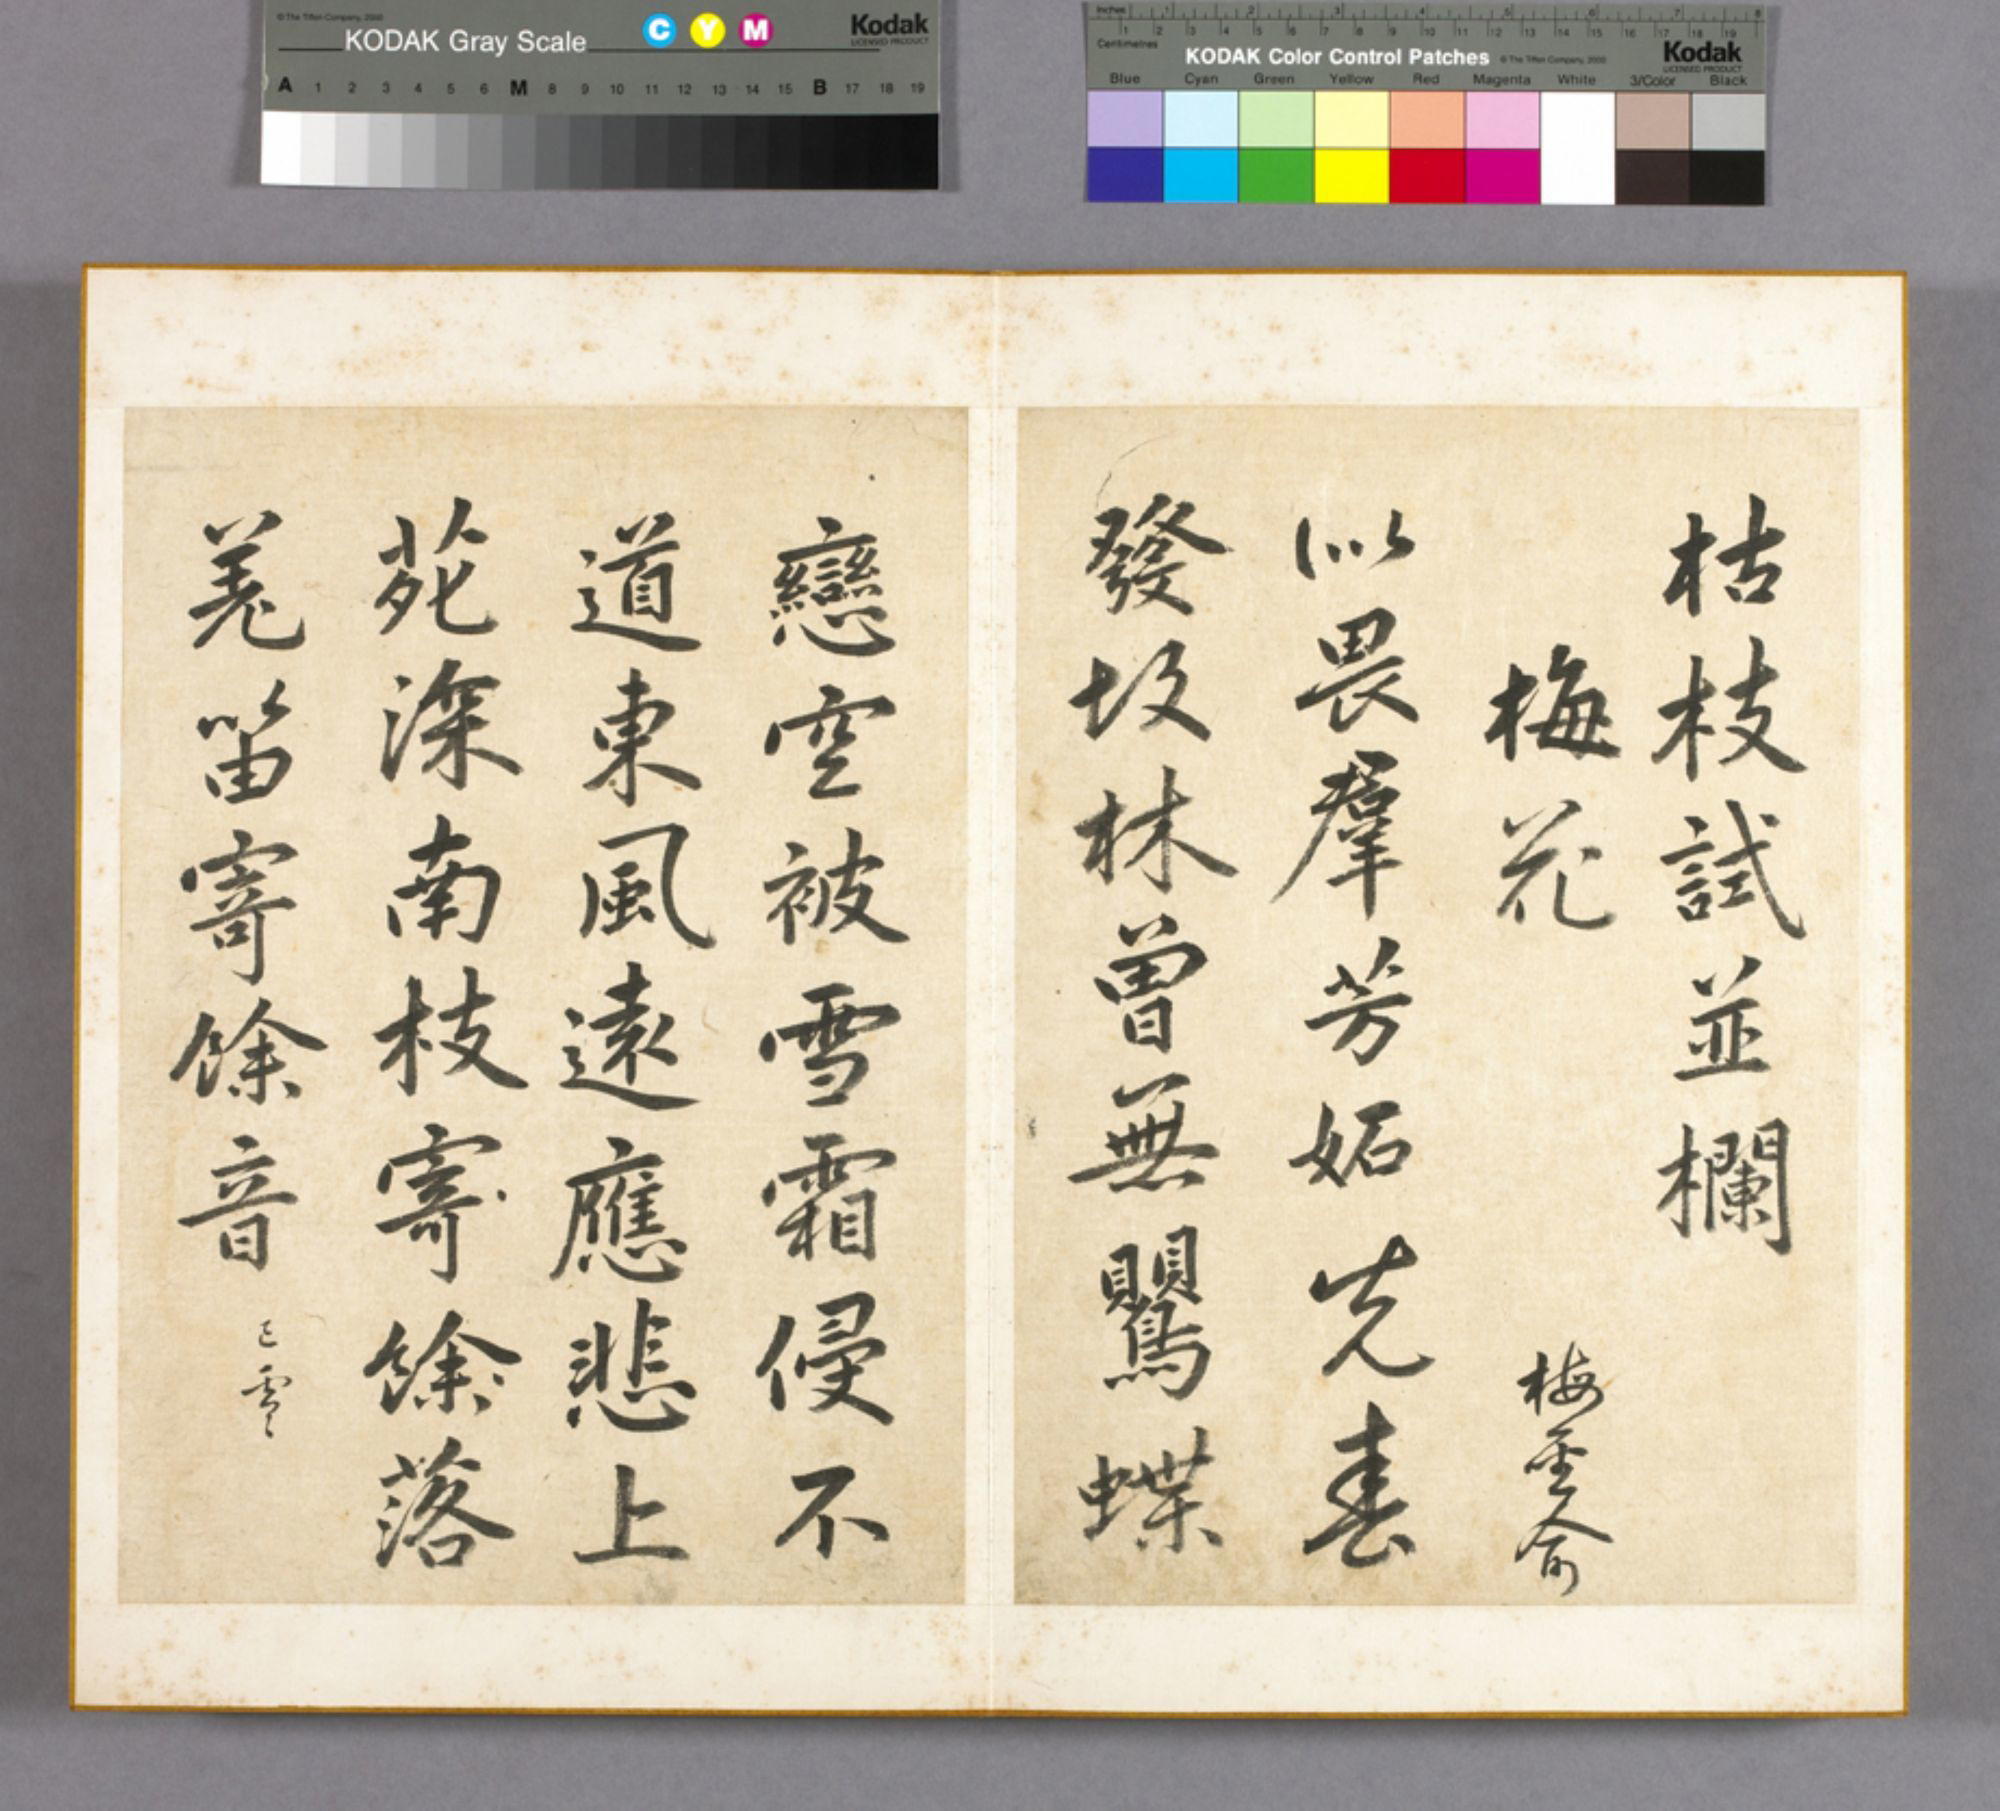 © The Tiffen Company, 2000
KODAK Gray Scale
C Y M
Kodak
LICENSED PRODUCT
A 1 2 3 4 5 6 M 8 9 10 11 12 13 14 15 B 17 18 19
Inches 1 2 3 4 5 6 7 8
Centimetres 1 2 3 4 5 6 7 8 9 10 11 12 13 14 15 16 17 18 19
KODAK Color Control Patches © The Tiffen Company, 2000
Kodak
LICENSED PRODUCT
Blue Cyan Green Yellow Red Magenta White 3/Color Black
枯枝試並欄
梅花 梅聖俞
似畏羣芳妬先春
發故林曾無鸎蝶
戀空被雪霜侵不
道東風遠應悲上
苑深南枝寄餘落
羌笛寄餘音